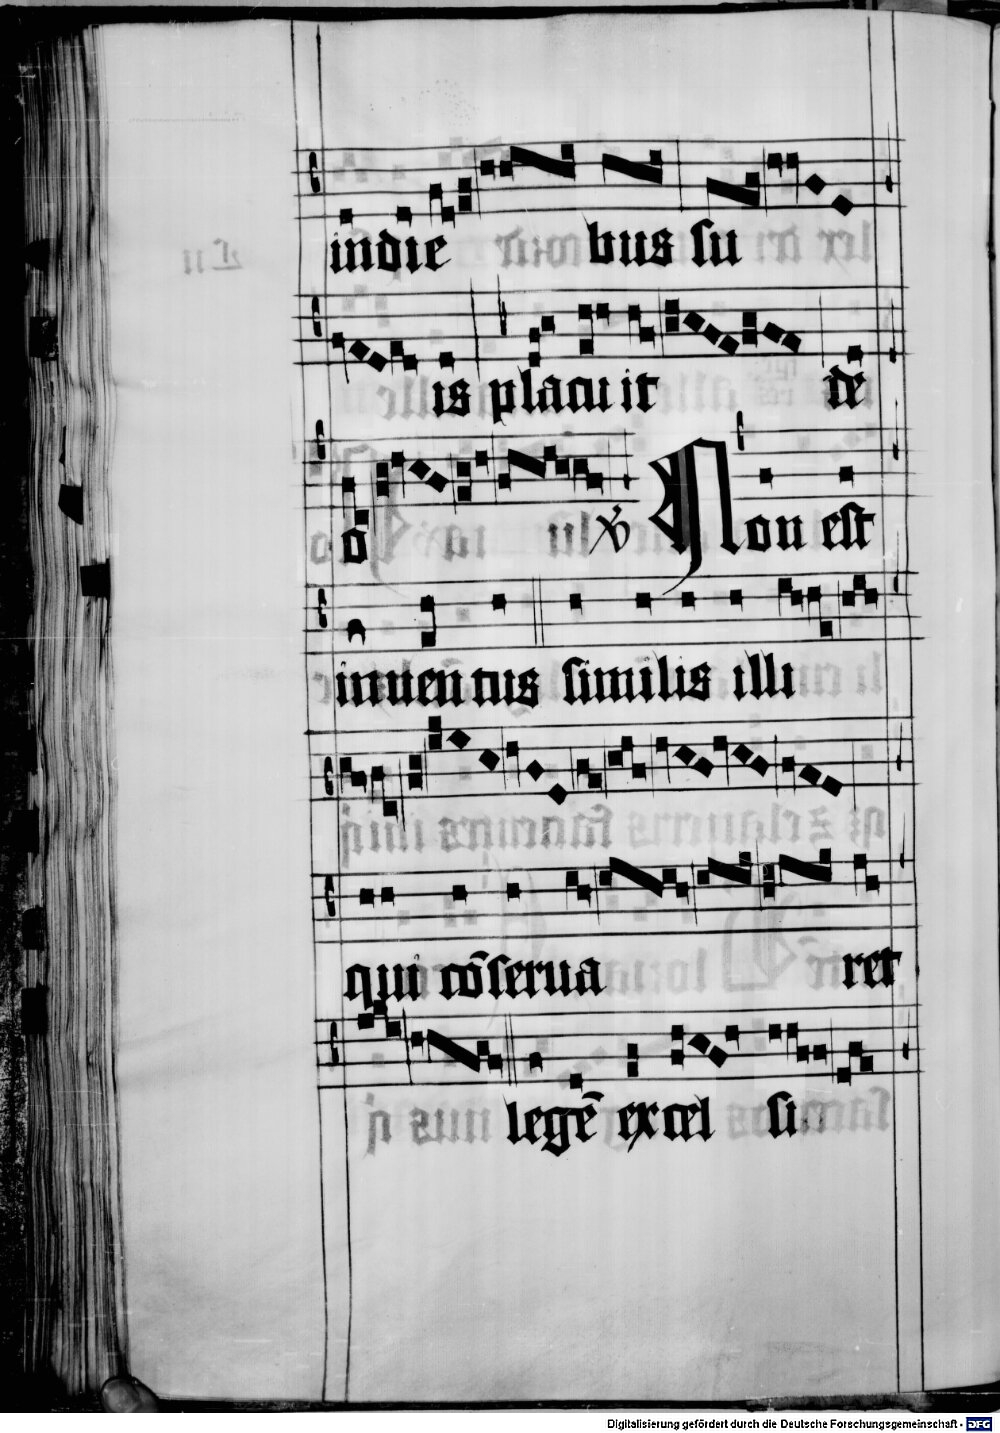 in die bus su
lis placuit de
o ℣ Non est
inuentus similis illi
qui cōserua ret
legē excel si
Digitalisierung gefördert durch die Deutsche Forschungsgemeinschaft - DFG